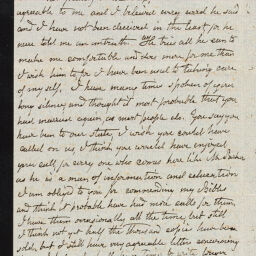 agreable to me and I beleive every word he said
and I have not been deceived in the least for he
never told me an untruth. He tries all he can to
make me comfortable and does more for me than
I wish him to for I have been used to takeing care
of my self, I have many times spoken of your
being single and thought it most probable that you
had married again as most people do. You say you
have been to our state, I wish you could have
called on us I think you would have enjoyed
your call, for every one who comes here like Mr
as he is a man of information and education
I am obliged to you for commending my Bible
and think it probable have had more calls for them,
I have them occasionally all the time, but still
I think not yet half the thousand copies have been
sold, but I still have very agreeable letters concerning
to write